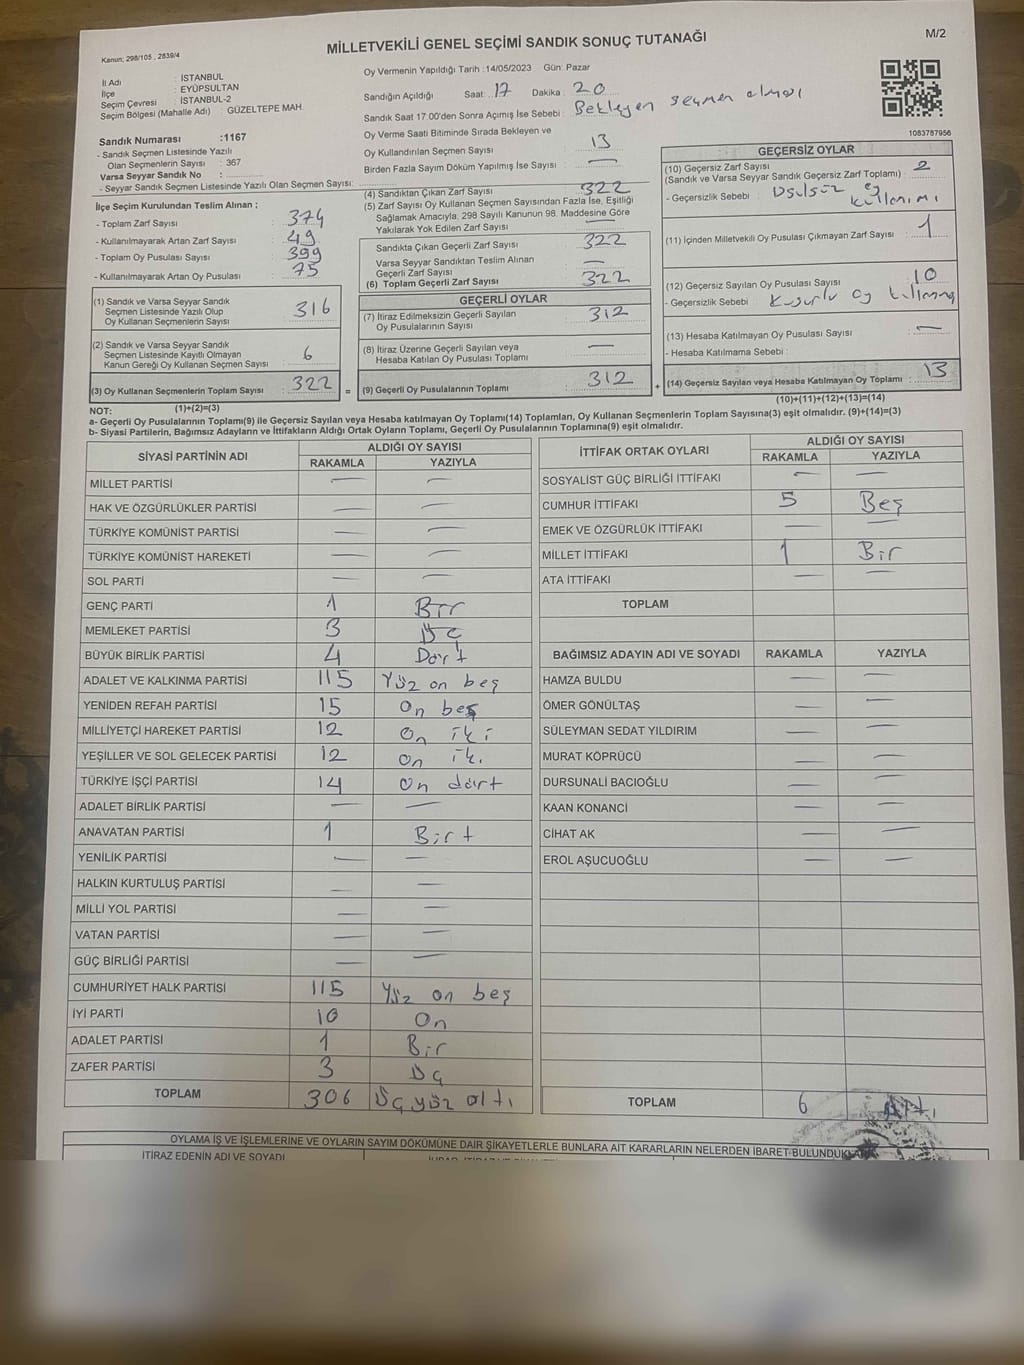 MİLLETVEKİLİ GENEL SEÇİMİ SANDIK SONUÇ TUTANAĞI
M/2
Kanun; 298/105 , 2839/4
İl Adı : İSTANBUL
İlçe : EYÜPSULTAN
Seçim Çevresi : İSTANBUL-2
Seçim Bölgesi (Mahalle Adı) : GÜZELTEPE MAH.
Sandık Numarası :1167
- Sandık Seçmen Listesinde Yazılı
Olan Seçmenlerin Sayısı : 367
Varsa Seyyar Sandık No :
- Seyyar Sandık Seçmen Listesinde Yazılı Olan Seçmen Sayısı:
Oy Vermenin Yapıldığı Tarih :14/05/2023 Gün: Pazar
Sandığın Açıldığı Saat: 17 Dakika : 20
Sandık Saat 17:00'den Sonra Açımış İse Sebebi : Bekleyen seçmen olması
Oy Verme Saati Bitiminde Sırada Bekleyen ve
Oy Kullandırılan Seçmen Sayısı : 13
Birden Fazla Sayım Döküm Yapılmış İse Sayısı : —
1083787956
İlçe Seçim Kurulundan Teslim Alınan ;
- Toplam Zarf Sayısı : 374
- Kullanılmayarak Artan Zarf Sayısı : 49
- Toplam Oy Pusulası Sayısı : 399
- Kullanılmayarak Artan Oy Pusulası : 75
(1) Sandık ve Varsa Seyyar Sandık
Seçmen Listesinde Yazılı Olup
Oy Kullanan Seçmenlerin Sayısı : 316
(2) Sandık ve Varsa Seyyar Sandık
Seçmen Listesinde Kayıtlı Olmayan
Kanun Gereği Oy Kullanan Seçmen Sayısı : 6
(3) Oy Kullanan Seçmenlerin Toplam Sayısı : 322
(1)+(2)=(3)
(4) Sandıktan Çıkan Zarf Sayısı : 322
(5) Zarf Sayısı Oy Kullanan Seçmen Sayısından Fazla İse, Eşitliği
Sağlamak Amacıyla, 298 Sayılı Kanunun 98. Maddesine Göre
Yakılarak Yok Edilen Zarf Sayısı : —
Sandıkta Çıkan Geçerli Zarf Sayısı : 322
Varsa Seyyar Sandıktan Teslim Alınan
Geçerli Zarf Sayısı : —
(6) Toplam Geçerli Zarf Sayısı : 322
GEÇERLİ OYLAR
(7) İtiraz Edilmeksizin Geçerli Sayılan
Oy Pusulalarının Sayısı : 312
(8) İtiraz Üzerine Geçerli Sayılan veya
Hesaba Katılan Oy Pusulası Toplamı : —
= (9) Geçerli Oy Pusulalarının Toplamı : 312
GEÇERSİZ OYLAR
(10) Geçersiz Zarf Sayısı
(Sandık ve Varsa Seyyar Sandık Geçersiz Zarf Toplamı) : 2
- Geçersizlik Sebebi : Usulsüz oy kullanımı
(11) İçinden Milletvekili Oy Pusulası Çıkmayan Zarf Sayısı : 1
(12) Geçersiz Sayılan Oy Pusulası Sayısı : 10
- Geçersizlik Sebebi : Kusurlu oy
(13) Hesaba Katılmayan Oy Pusulası Sayısı : —
- Hesaba Katılmama Sebebi :
+ (14) Geçersiz Sayılan veya Hesaba Katılmayan Oy Toplamı : 13
(10)+(11)+(12)+(13)=(14)
NOT:
a- Geçerli Oy Pusulalarının Toplamı(9) ile Geçersiz Sayılan veya Hesaba katılmayan Oy Toplamı(14) Toplamları, Oy Kullanan Seçmenlerin Toplam Sayısına(3) eşit olmalıdır. (9)+(14)=(3)
b- Siyasi Partilerin, Bağımsız Adayların ve İttifakların Aldığı Ortak Oyların Toplamı, Geçerli Oy Pusulalarının Toplamına(9) eşit olmalıdır.
SİYASİ PARTİNİN ADI ALDIĞI OY SAYISI
RAKAMLA YAZIYLA
MİLLET PARTİSİ — —
HAK VE ÖZGÜRLÜKLER PARTİSİ — —
TÜRKİYE KOMÜNİST PARTİSİ — —
TÜRKİYE KOMÜNİST HAREKETİ — —
SOL PARTİ — —
GENÇ PARTİ 1 Bir
MEMLEKET PARTİSİ 3 Üç
BÜYÜK BİRLİK PARTİSİ 4 Dört
ADALET VE KALKINMA PARTİSİ 115 Yüz on beş
YENİDEN REFAH PARTİSİ 15 On beş
MİLLİYETÇİ HAREKET PARTİSİ 12 On iki
YEŞİLLER VE SOL GELECEK PARTİSİ 12 On iki
TÜRKİYE İŞÇİ PARTİSİ 14 On dört
ADALET BİRLİK PARTİSİ — —
ANAVATAN PARTİSİ 1 Bir
YENİLİK PARTİSİ — —
HALKIN KURTULUŞ PARTİSİ — —
MİLLİ YOL PARTİSİ — —
VATAN PARTİSİ — —
GÜÇ BİRLİĞİ PARTİSİ — —
CUMHURİYET HALK PARTİSİ 115 Yüz on beş
İYİ PARTİ 10 On
ADALET PARTİSİ 1 Bir
ZAFER PARTİSİ 3 Üç
TOPLAM 306 Üç yüz altı
İTTİFAK ORTAK OYLARI ALDIĞI OY SAYISI
RAKAMLA YAZIYLA
SOSYALİST GÜÇ BİRLİĞİ İTTİFAKI — —
CUMHUR İTTİFAKI 5 Beş
EMEK VE ÖZGÜRLÜK İTTİFAKI — —
MİLLET İTTİFAKI 1 Bir
ATA İTTİFAKI — —
TOPLAM
BAĞIMSIZ ADAYIN ADI VE SOYADI RAKAMLA YAZIYLA
HAMZA BULDU — —
ÖMER GÖNÜLTAŞ — —
SÜLEYMAN SEDAT YILDIRIM — —
MURAT KÖPRÜCÜ — —
DURSUNALİ BACIOĞLU — —
KAAN KONANCİ — —
CİHAT AK — —
EROL AŞUCUOĞLU — —
TOPLAM 6 Altı
OYLAMA İŞ VE İŞLEMLERİNE VE OYLARIN SAYIM DÖKÜMÜNE DAİR ŞİKAYETLERLE BUNLARA AİT KARARLARIN NELERDEN İBARET BULUNDUKLARI
İTİRAZ EDENİN ADI VE SOYADI